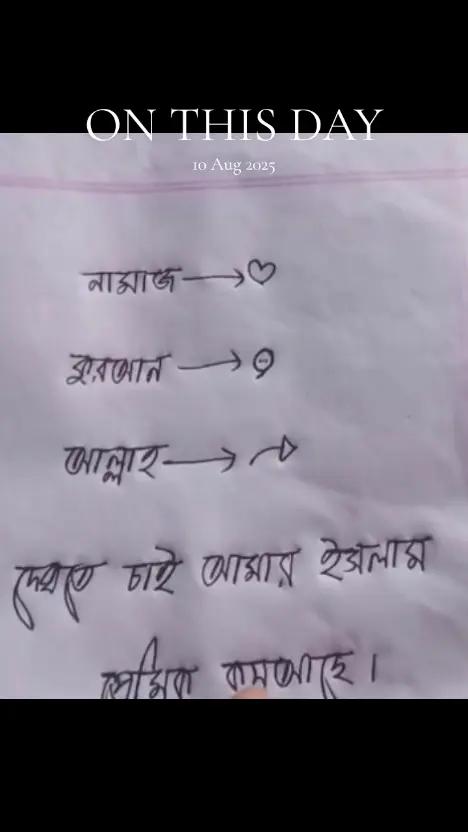 ON THIS DAY
10 Aug 2025
নামাজ → ♡
কুরআন →
আল্লাহ →
দেখতে চাই আমার ইসলাম
প্রেমিক কমআছে।